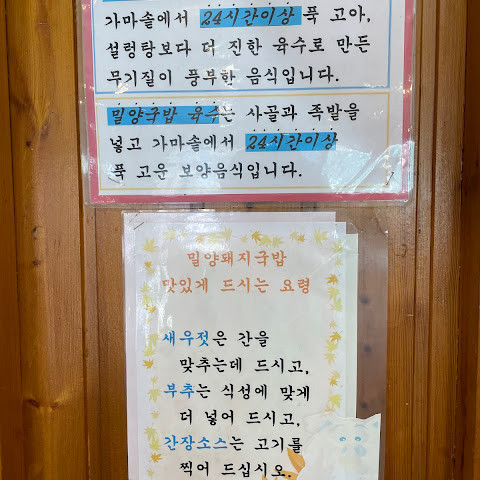 가마솥에서 24시간이상 푹 고아,
설렁탕보다 더 진한 육수로 만든
무기질이 풍부한 음식입니다.
밀양국밥 육수는 사골과 족발을
넣고 가마솥에서 24시간이상
푹 고운 보양음식입니다.
밀양돼지국밥
맛있게 드시는 요령
새우젓은 간을
맞추는데 드시고,
부추는 식성에 맞게
더 넣어 드시고,
간장소스는 고기를
찍어 드십시오.